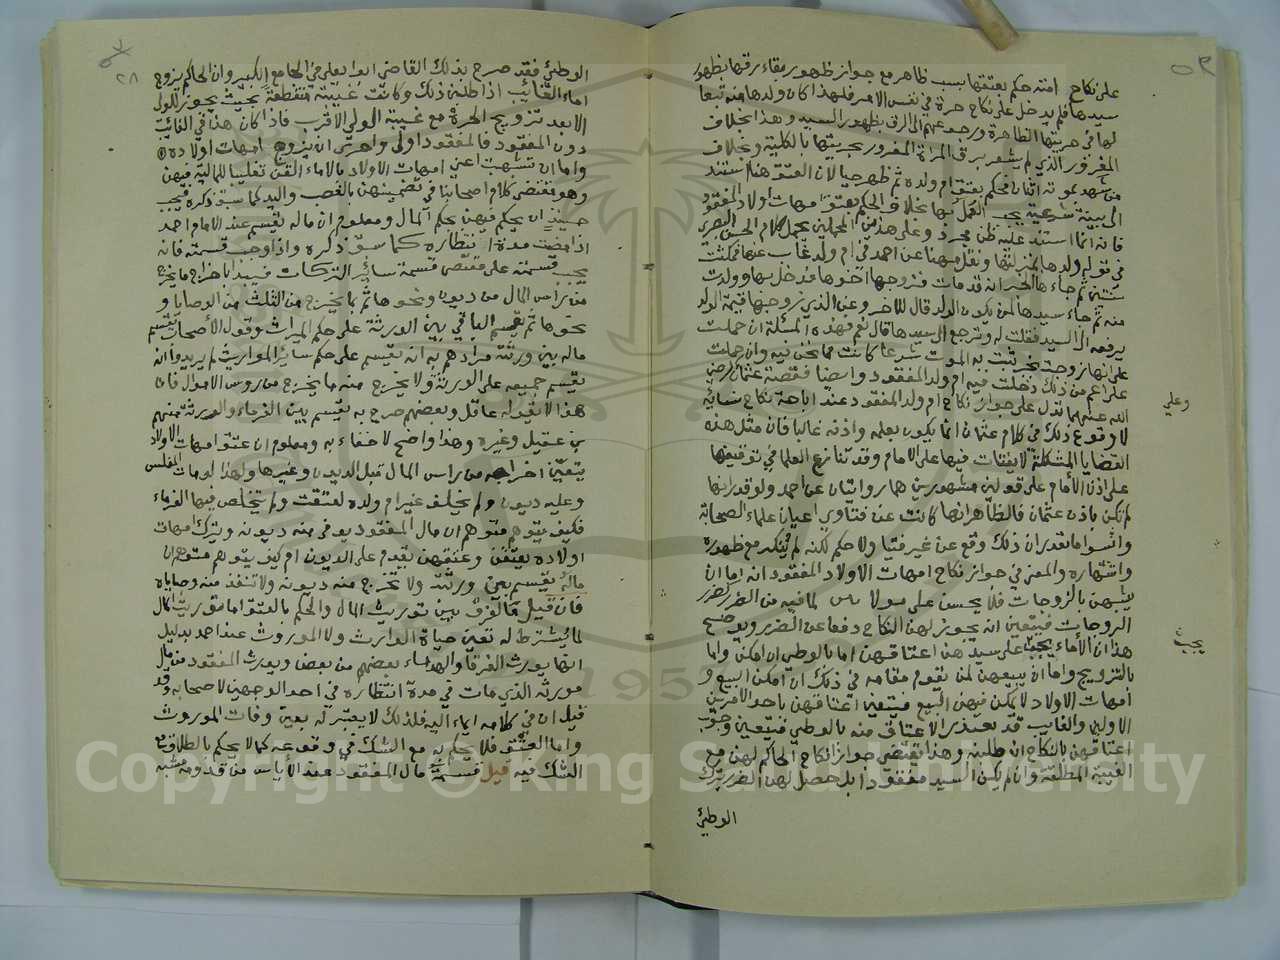 على نكاح امته حكم بعتقها بسبب ظاهر مع جواز ظهور بقاء رقها بظهور
سيدها فلم يدخل على نكاح حرة في نفس الامر فلهذا كان ولدها منه تبعا
لها في حريتها الظاهرة ورجوعهم الى الرق بظهور السيد وهذا بخلاف
المغرور الذي لم يشعر برق المراة المغرور بحريتها بالكلية وبخلاف
من شهد بموته اثنان فحكم بعتق ام ولده ثم ظهر حيا لان العتق هنا استند
الى بينة شرعية يجب العمل بها بخلاف الحكم بعتق امهات ولاد المفقود
فانه انما استند عليه ظن مجرد وعلى هذين المحملين يحمل كلام الحسن البصري
في قوله ولدها بمنزلتها ونقل مهنا عن احمد في ام ولد غاب عنها فمكثت
سنتين ثم جاءها الخبر انه قد مات فتزوجها اخوها فدخل بها وولدت
منه ثم جاء سيدها لمن يكون الولد قال للآخر وعن الذي تزوجها قيمة الولد
يرفعه الى السيد فقلت له وترجع الى سيدها قال نعم فهذه المسئلة ان حملت
على انها زوجت بخبر ثبت به الموت شرعا كانت مما نحن فيه وان حملت
على اعم من ذلك دخلت فيه ام ولد المفقود وايضا فقصة عثمان رضي
الله عنه انما تدل على جواز نكاح ام ولد المفقود عند اباحة نكاح نسائه
وعلي
لا وقوع ذلك في كلام عثمان انما يكون بعلمه واذنه غالبا فان مثل هذه
القضايا المشكلة لا يفتات فيها على الامام وقد تنازع العلما في توقيفها
على اذن الأمام على قولين مشهورين هما روايتان عن احمد ولو قدر انها
لم تكن باذن عثمان فالظاهر انها كانت عن فتاوي اعيان علماء الصحابة
واسوا ما يقدر ان ذلك وقع عن غير فتيا ولا حكم لكنه لم ينكر مع ظهوره
واشتهاره والمعنى في جواز نكاح امهات الاولاد المفقود انه اما ان
يشبهن بالزوجات فلا يحسن على مولا لما فيه من الضرر كضرر
الزوجات فيتعين انه يجوز لهن النكاح دفعا عن الضرر ويوضح
هذا ان الأماء يجب على سيدهن اعتاقهن اما بالوطي ان امكن واما
يجب
بالتزويج واما ان يبيعهن لمن يقوم مقامه في ذلك ان امكن البيع و
امهات الاولاد لا يمكن فيهن البيع فيتعين اعتاقهن باحد الامرين
الاولين والغايب قد تعذر الاعتاف منه بالوطي فيتعين وجوب
اعتاقهن بالنكاح ان طلبنه وهذا يقتضي جواز انكاح الحاكم لهن مع
الغيبة المطلقة وان لم يكن السيد مفقودا بل حصل لهن الضرر بترك
الوطئ
٢٨
الوطئ فقد صرح بذلك القاضي ابوا يعلى في الجامع الكبير وان الحاكم يزوج
اماء الغائب اذا طلبن ذلك وكانت غيبته منقطعة بحيث يجوز للولي
الابعد تزويج الحرة مع غيبة الولي الاقرب فاذا كان هذا في الغائب
دون المفقود فالمفقود اولى واحرى ان يزوج امهات اولاده
واما ان تشبهت اعني امهات الاولاد بالاماء القن تغليبا للمالية فيهن
وهو مقتضى كلام اصحابنا في تضمينهن بالغصب واليد كما سبق ذكره فيجب
حينئذ ان يحكم فيهن بحكم المال ومعلوم ان ماله يقسم عند الامام احمد
اذا مضت مدة انتظاره كما سبق ذكره واذا وجب قسمته فانه
يجب قسمته على مقتضى قسمة سائر التركات فيبدا باخراج ما يخرج
من راس المال من ديون ونحوها ثم بما يخرج من الثلث من الوصايا و
نحوها ثم يقسم الباقي بين الورثة على حكم الميراث وقول الأصحاب يقسم
ماله بين ورثته مرادهم به انه يقسم على حكم سائر المواريث لم يريدوا انه
يقسم جميعه على الورثة ولا يخرج منه ما يخرج من روس الاموال فان
هذا لا يقوله عاقل وبعضهم صرح به يقسم بين الغرماء والورثة منهم
بن عقيل وغيره وهذا واضح لا خفاء به ومعلوم ان عتق امهات الاولاد
يتعين اخراجه من راس المال قبل الديون وغيرها ولهذا لو مات المفلس
وعليه ديون ولم يخلف غير ام ولده لعتقت ولم يتخلص فيها الغرماء
فكيف يتوهم متوهم ان مال المفقود يوفي منه ديونه ويترك امهات
اولاده بعتقهن وعتقهن يقوم على الديون ام كيف يتوهم متوهم ان
ماله يقسم بعين ورثته ولا تخرج منه ديونه ولا تنفذ منه وصاياه
فان قيل فالفرق بين توريث المال والحكم بالعتق اما توريث المال
لما يشترط له تعين حياة الوارث ولا الموروث عند احمد بدليل
انها يورث الغرقا والهدماء بعضهم من بعض ويورث المفقود من مال
مورثه الذي مات في مدة انتظاره في احد الوجهين لاصحابه وقد
قيل ان في كلامه ايماء اليه فلذلك لا يعتبر له بعين وفات الموروث
واما العتق فلا يحكم به مع الشك في وقوعه كما لا يحكم بالطلاق مع
الشك فيه قيل قسمة مال المفقود عند الأياس من قدومه مشبه
Copyright © King Saud University
1957